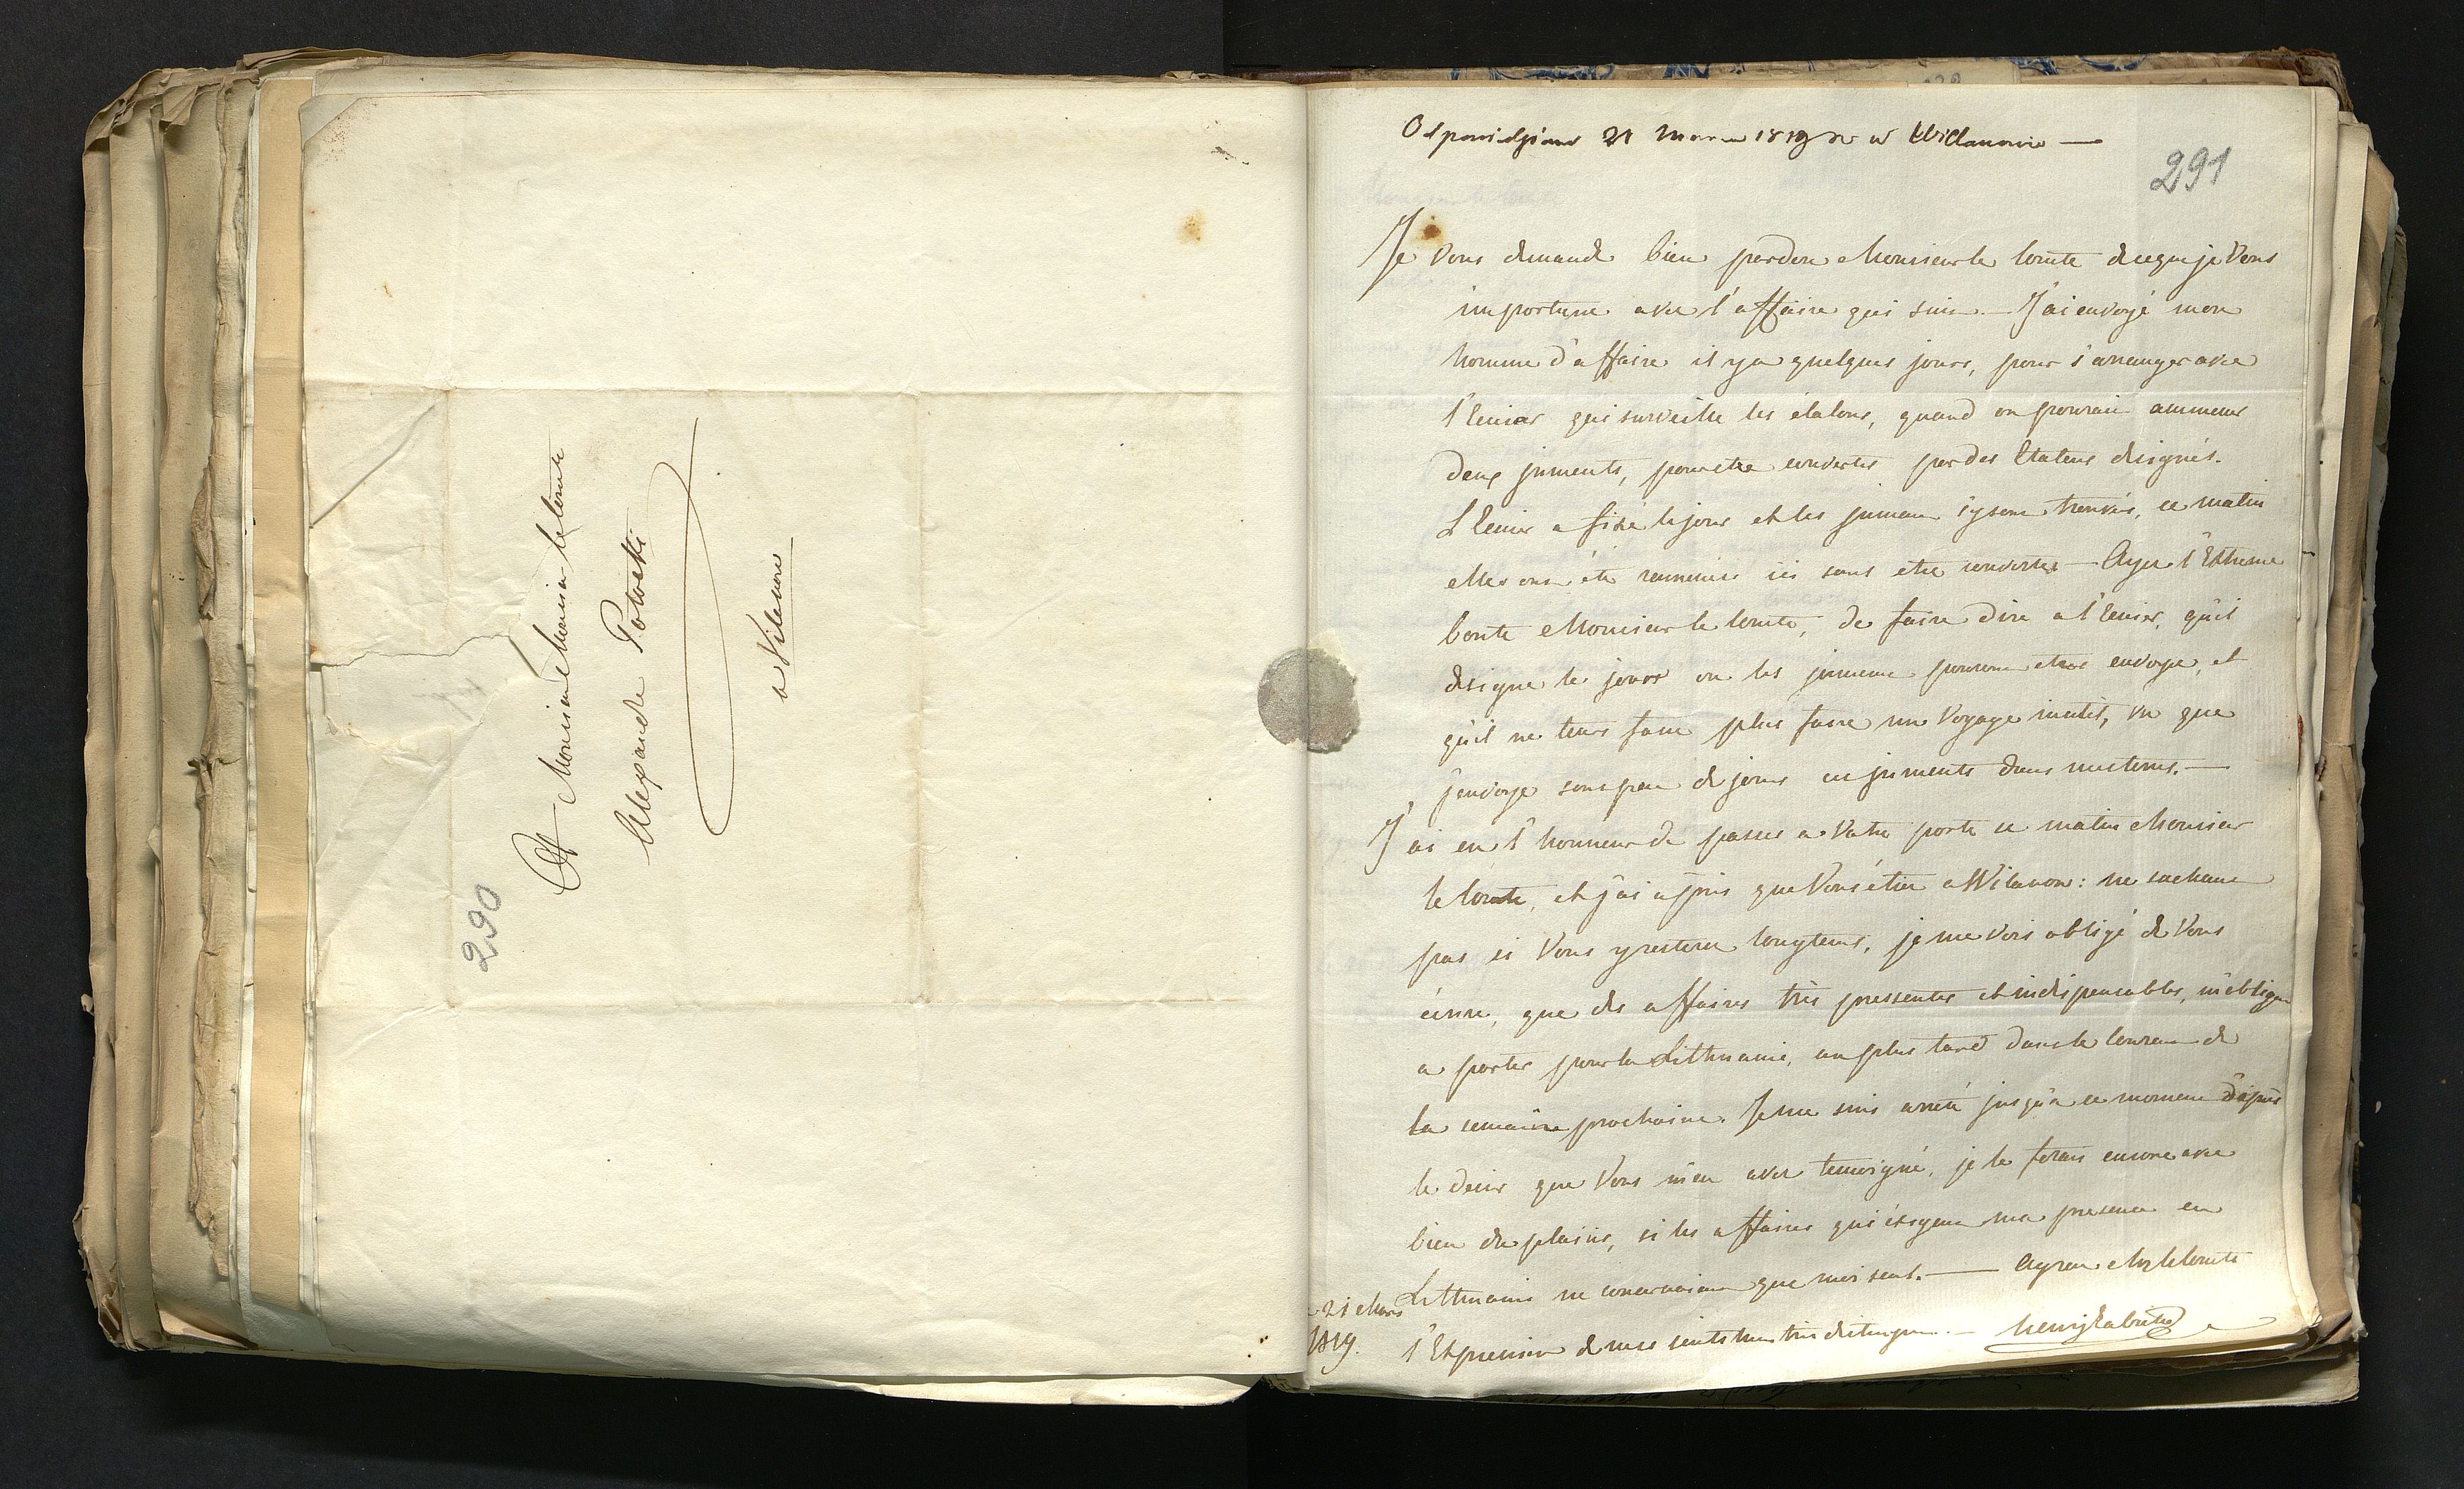 A Monsieur Monsieur le Comte
Alexandre Potocki
a Vilanow
290
Odpowiedziano 21 Marca 1819 w Willanowie —
291
Je Vous demande bien pardon Monsieur le Comte de ce que je Vous
importune avec l'affaire qui suit. — J'ai envoyé mon
homme d'affaire il y a quelques jours, pour s'arranger avec
l'Ecuier qui surveille les étalons, quand on pourrait ammener
deux juments, pour etre couvertes par des Etalons designés.
L'Ecuier a fixé le jour et les jumens s'y sont trouvés, ce matin
elles ont été rammenés ici sans etre couvertes — Ayez l'Extreme
bonté Monsieur le Comte, de faire dire a l'Ecuier, qu'il
designe le jour ou les jumens pourront etre envoyé, et
qu'il ne leurs fasse plus faire un Voyage inutil, vu que
j'envoye sous peu de jours ces juments dans mes terres. —
J'ai eu l'honneur de passer a Votre porte ce matin Monsieur
le Comte, et j'ai apris que Vous étiez a Wilanow: ne sachant
pas si Vous y resterez longtems, je me vois obligé de Vous
écrire, que des affaires très pressentes et indispensables, m'obligent
a partir pour la Lithuanie, au plus tard dans le courant de
la semaine prochaine. Je me suis arrêté jusqu'a ce moment d'apres
le desir que Vous m'en avez temoigné, je le ferais encore avec
bien du plaisir, si les affaires qui éxigent ma presence en
Lithuanie ne concernaient que moi seul. — Agréez Mr le Comte
l'Expression de mes sentimens très distingués. —
21 Mars
1819.